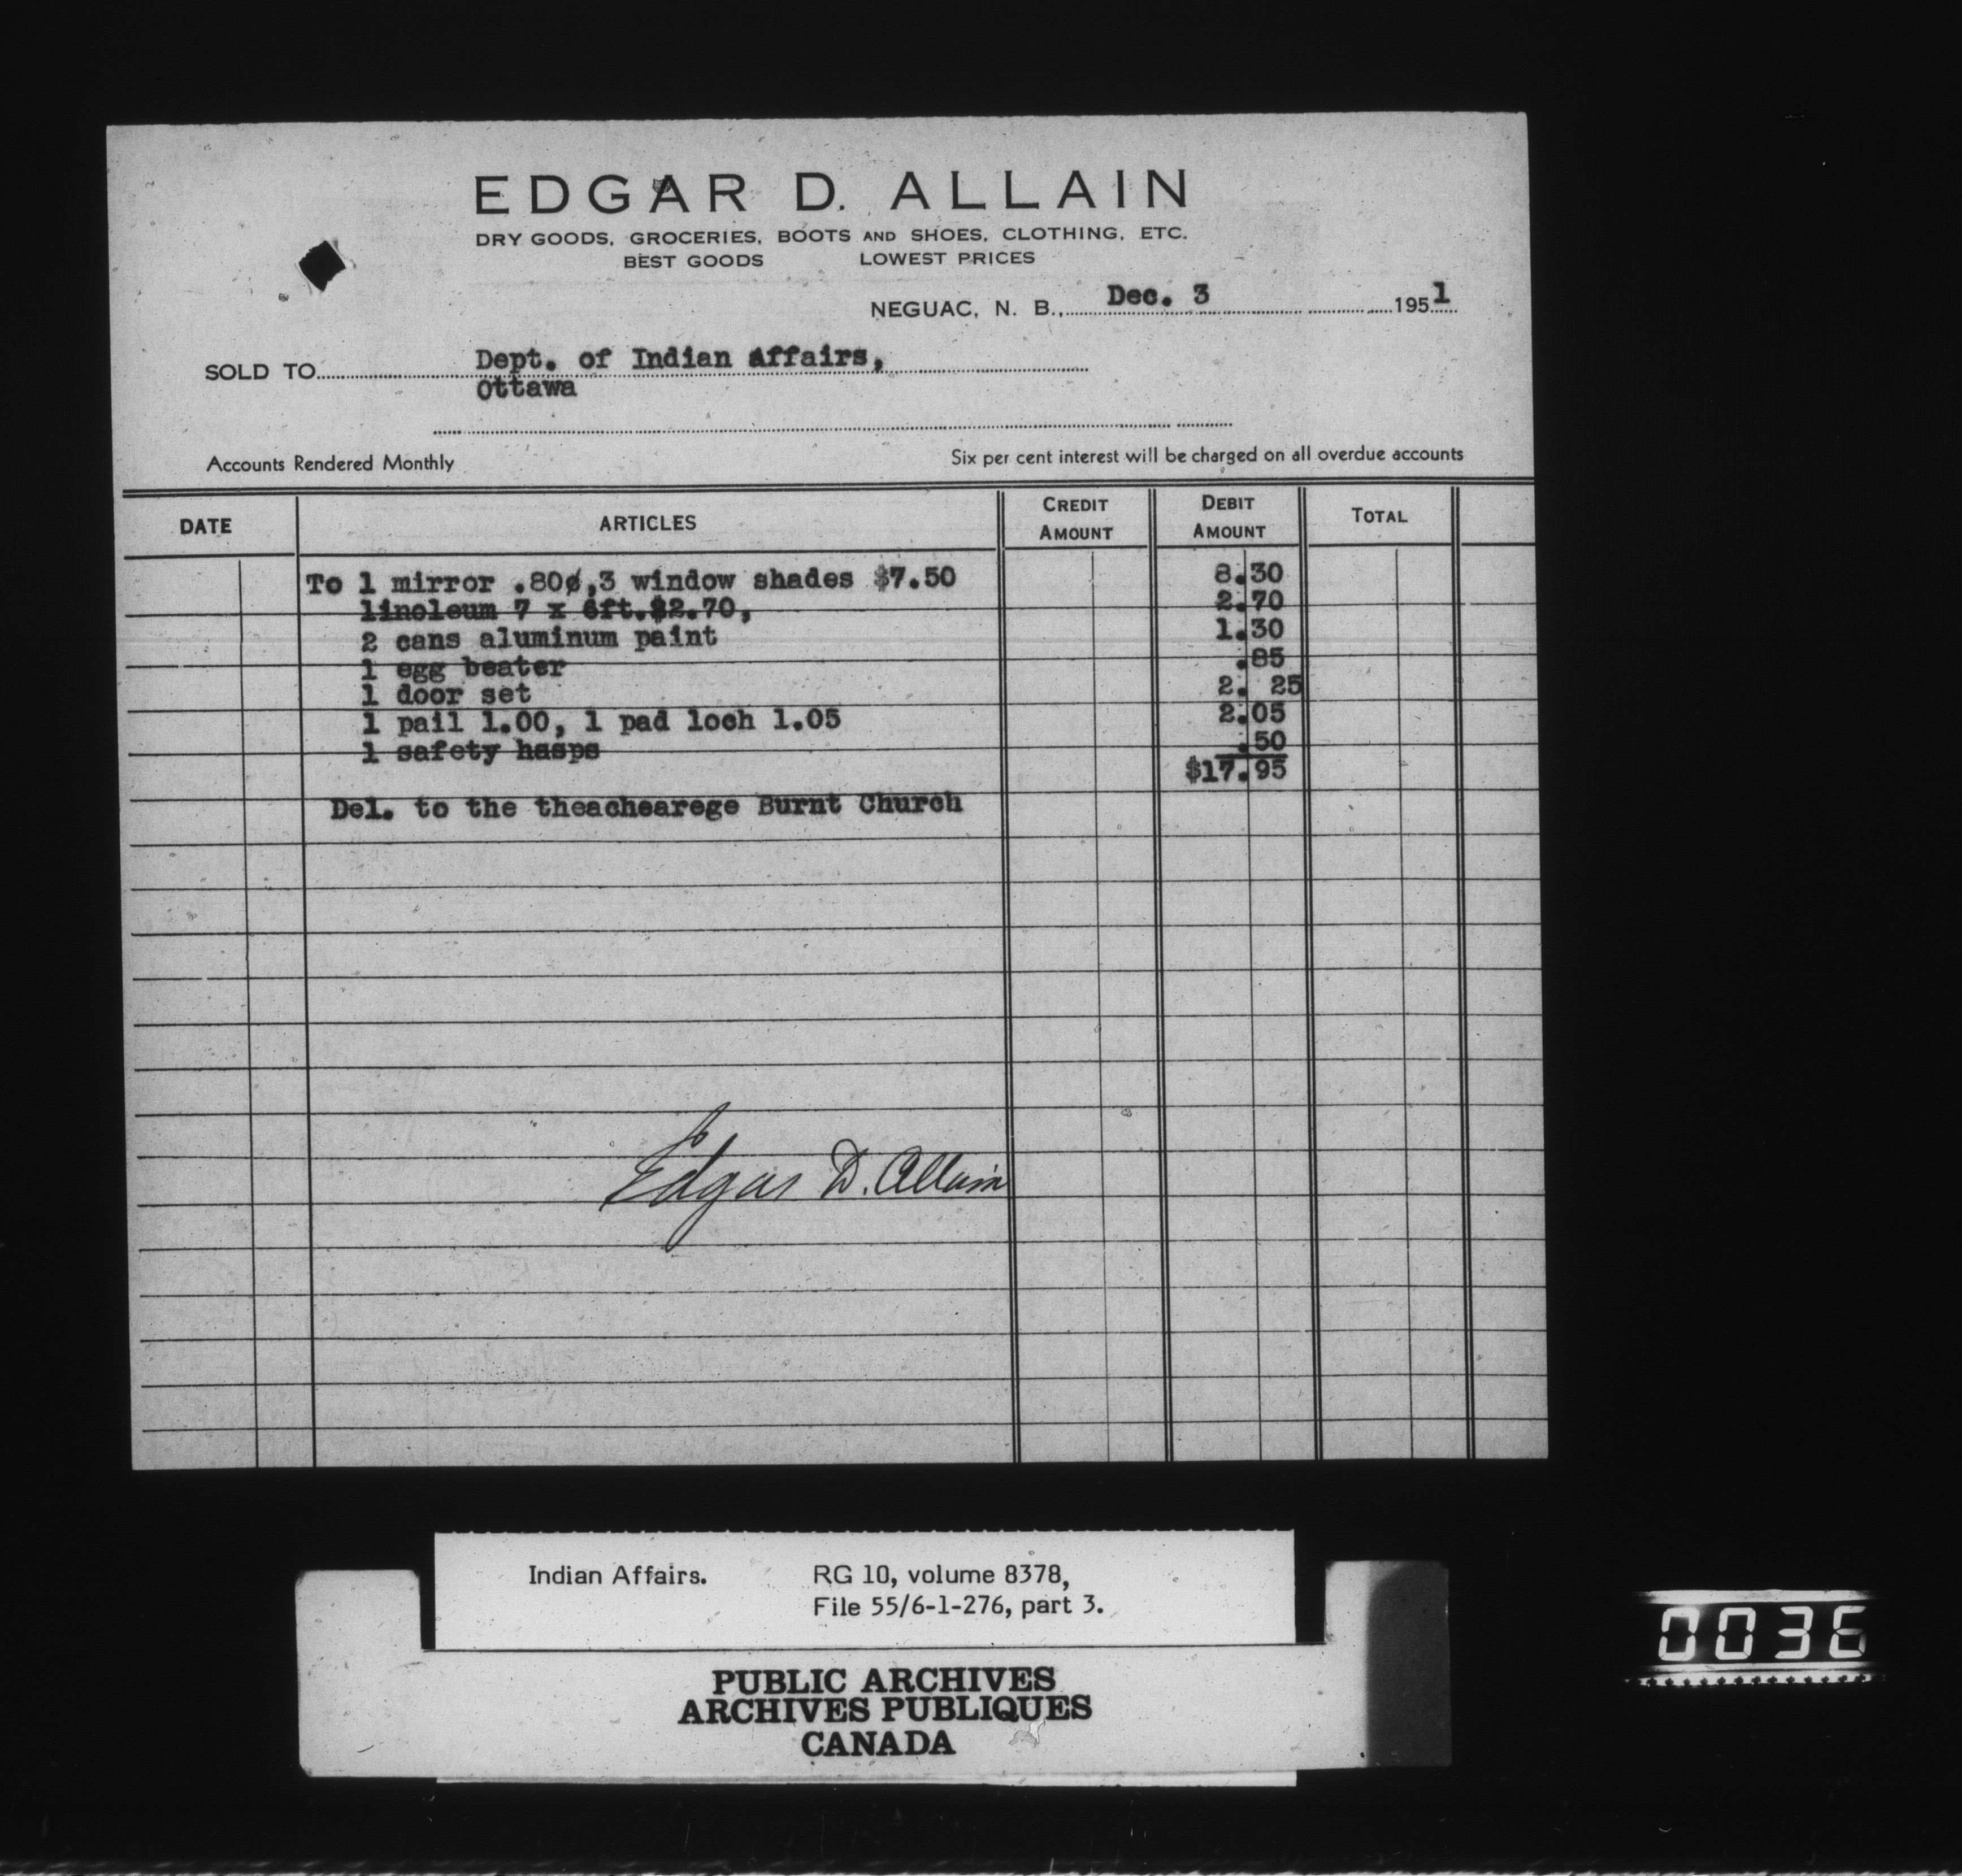 EDGAR D. ALLAIN
DRY GOODS, GROCERIES, BOOTS AND SHOES, CLOTHING, ETC.
BEST GOODS LOWEST PRICES
NEGUAC, N. B., Dec. 3 1951
SOLD TO Dept. of Indian Affairs,
Ottawa
Accounts Rendered Monthly Six per cent interest will be charged on all overdue accounts
DATE ARTICLES CREDIT AMOUNT DEBIT AMOUNT TOTAL
To 1 mirror .80¢,3 window shades $7.50 8.30
linoleum 7 x 6ft.$2.70, 2.70
2 cans aluminum paint 1.30
1 egg beater .85
1 door set 2. 25
1 pail 1.00, 1 pad loch 1.05 2.05
1 safety hasps .50
$17.95
Del. to the theachearege Burnt Church
Edgar D. Allain
Indian Affairs. RG 10, volume 8378,
File 55/6-1-276, part 3.
PUBLIC ARCHIVES
ARCHIVES PUBLIQUES
CANADA
0036